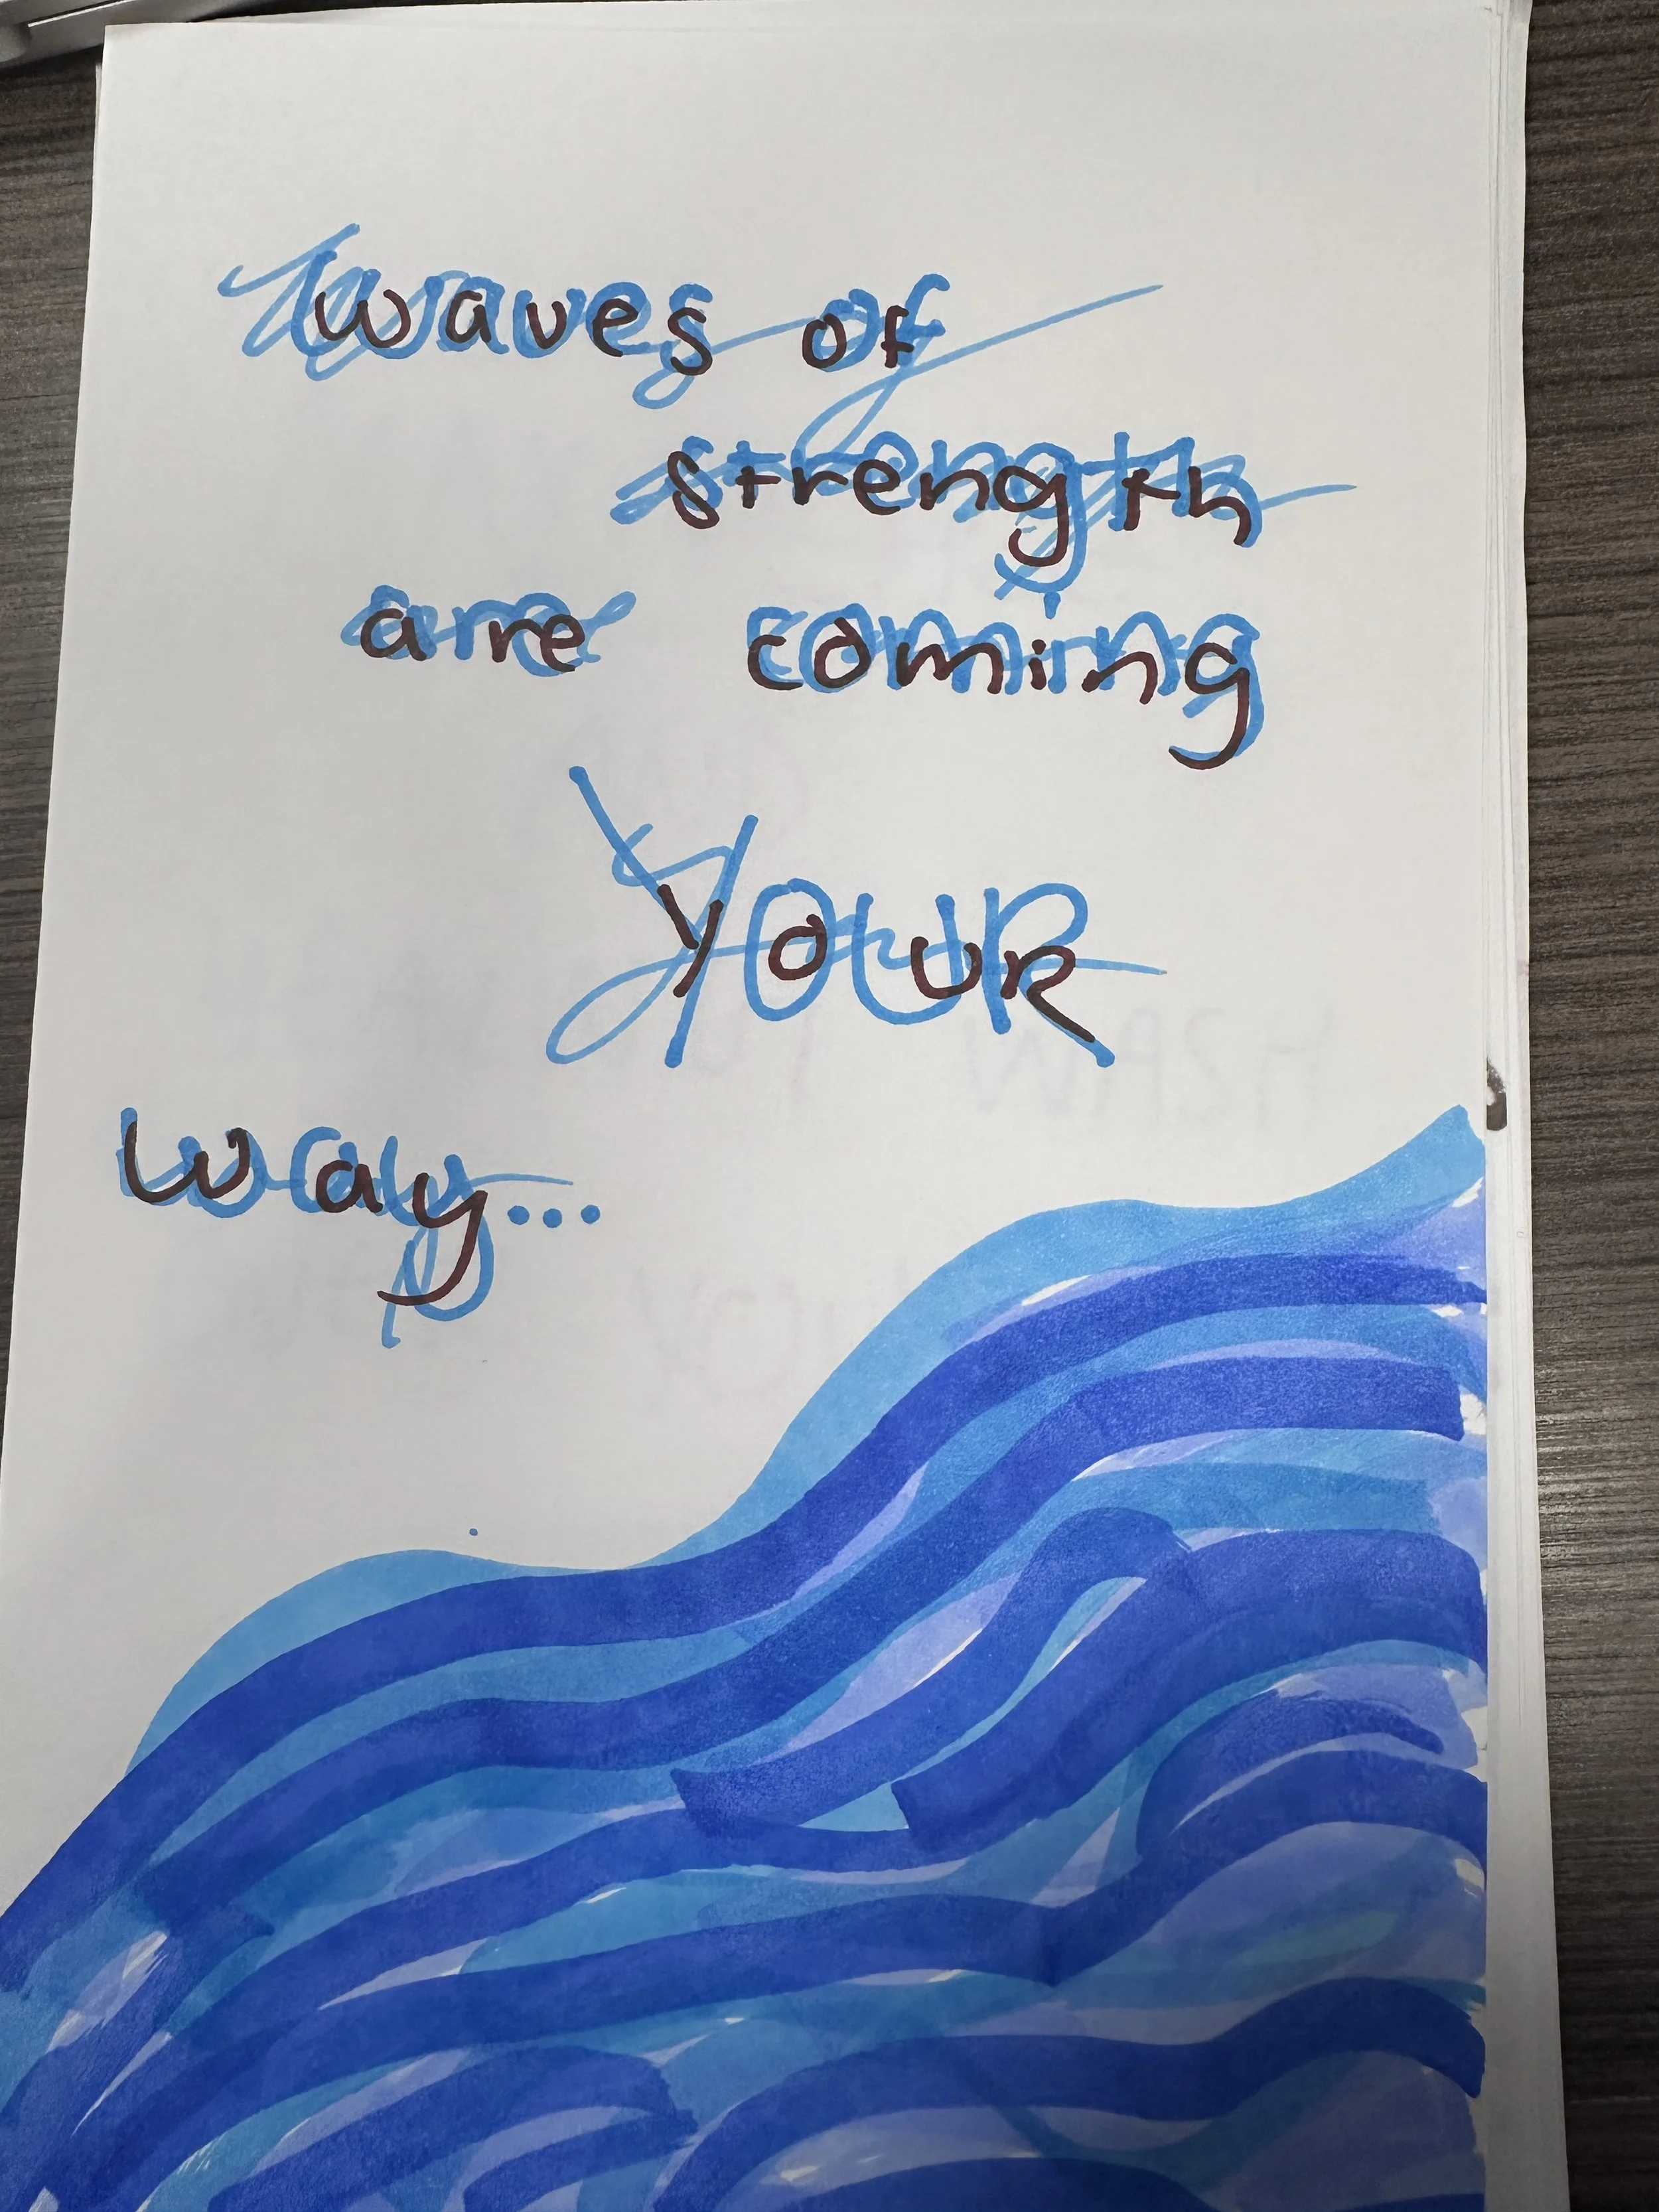 waves of
strength
are coming
YOUR
way...